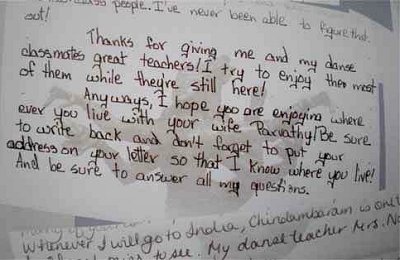 people. I've never been able to figure that
out!
Thanks for giving me and my danse
classmates great teachers! I try to enjoy the most
of them while theyre still here!
Anyways, I hope you are enjoying where
ever you live with your wife Parvathy! Be sure
to write back and don't forget to put your
address on your letter so that I know where you live!
And be sure to answer all my questions.
Whenever I will go to India, Chindambaram is
to see. My danse teacher Mrs.